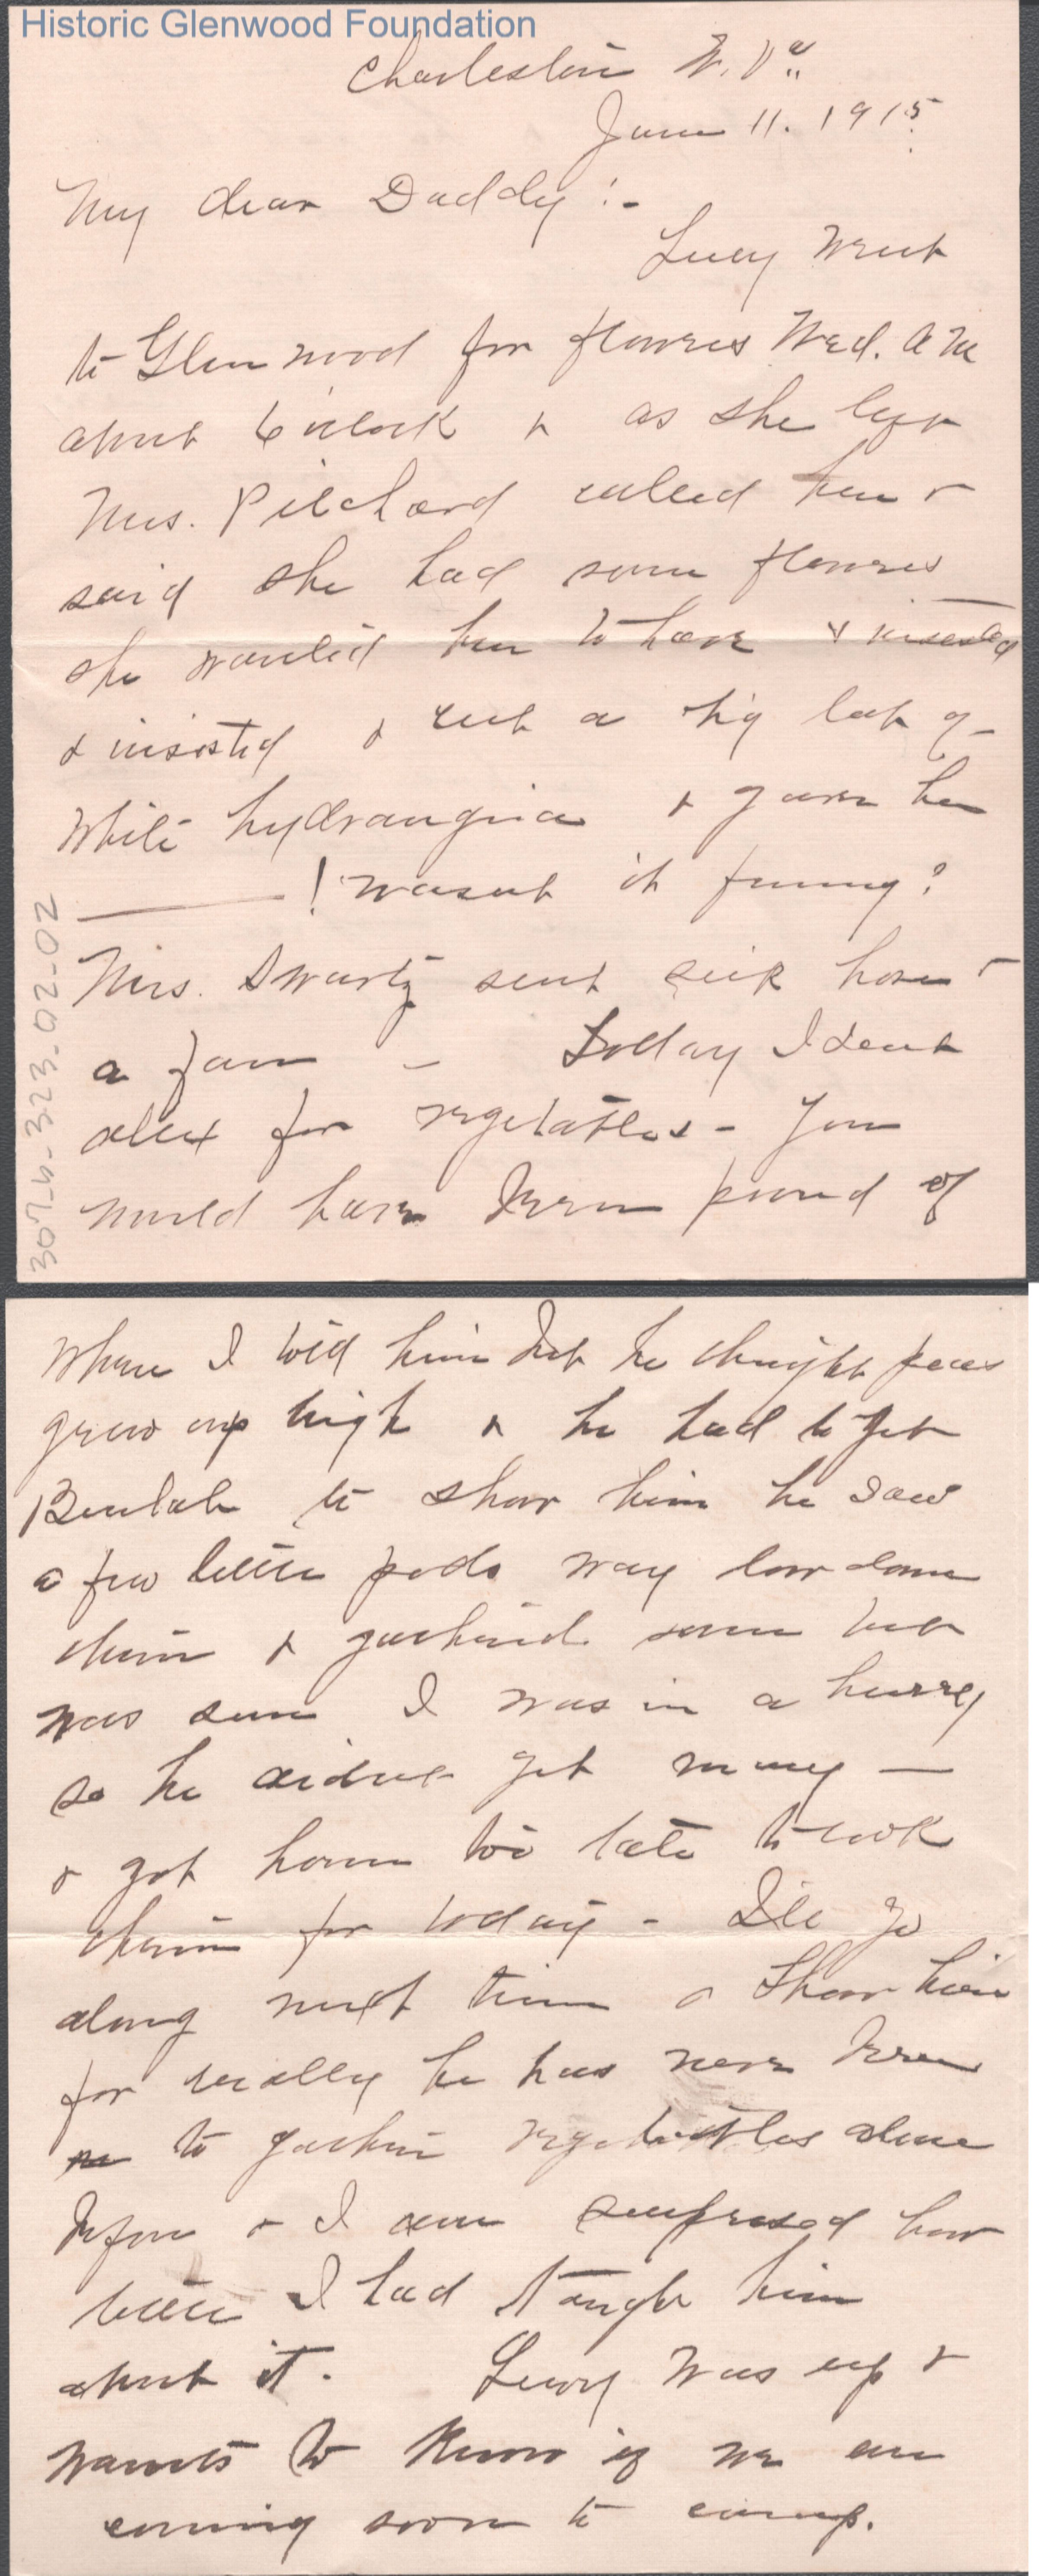 Historic Glenwood Foundation
Charleston W. Va.
June 11. 1915.
My dear Daddy :-
Lucy went
to Glenwood for flowers Wed. A M
about 6 oclock & as she left
Mrs. Pilchard called her &
said she had some flowers
she wanted her to have & insisted
& insisted & cut a big lot of
White hydrangia & gave her
! Wasent it funny?
Mrs. Swartz sent sick home &
a fan - Today I sent
Alex for vegetables - You
would have been proud of
where I told him but he thought peas
grew up high & he had to get
Beulah to show him he saw
a few little pods way low down
then & gathered some but
was sure I was in a hurry
so he didnt get many —
& got home too late to cook
them for today - I'll go
along next time & show him
for really he has never been
to gather vegetables alone
before & I am surprised how
little I had taught him
about it. Lucy was up &
wants to know if we are
coming soon to camp.
307-b-323-02-02